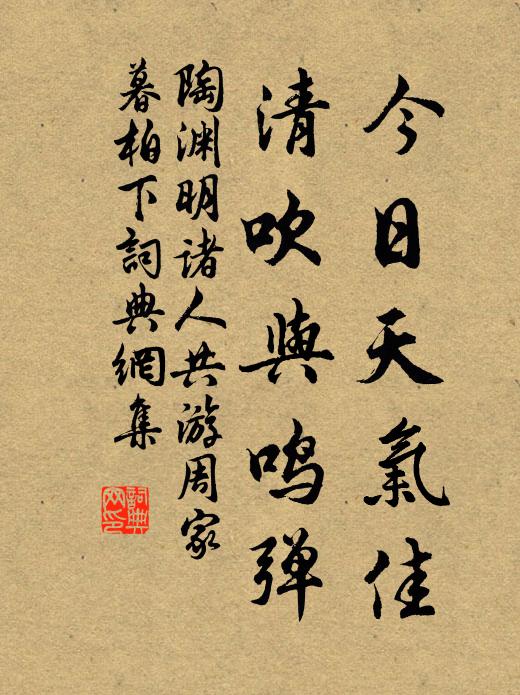 今日天氣佳
清吹與鳴弹
陶渊明诸人共游周家
暮柏下詞典網集
詞典
网印